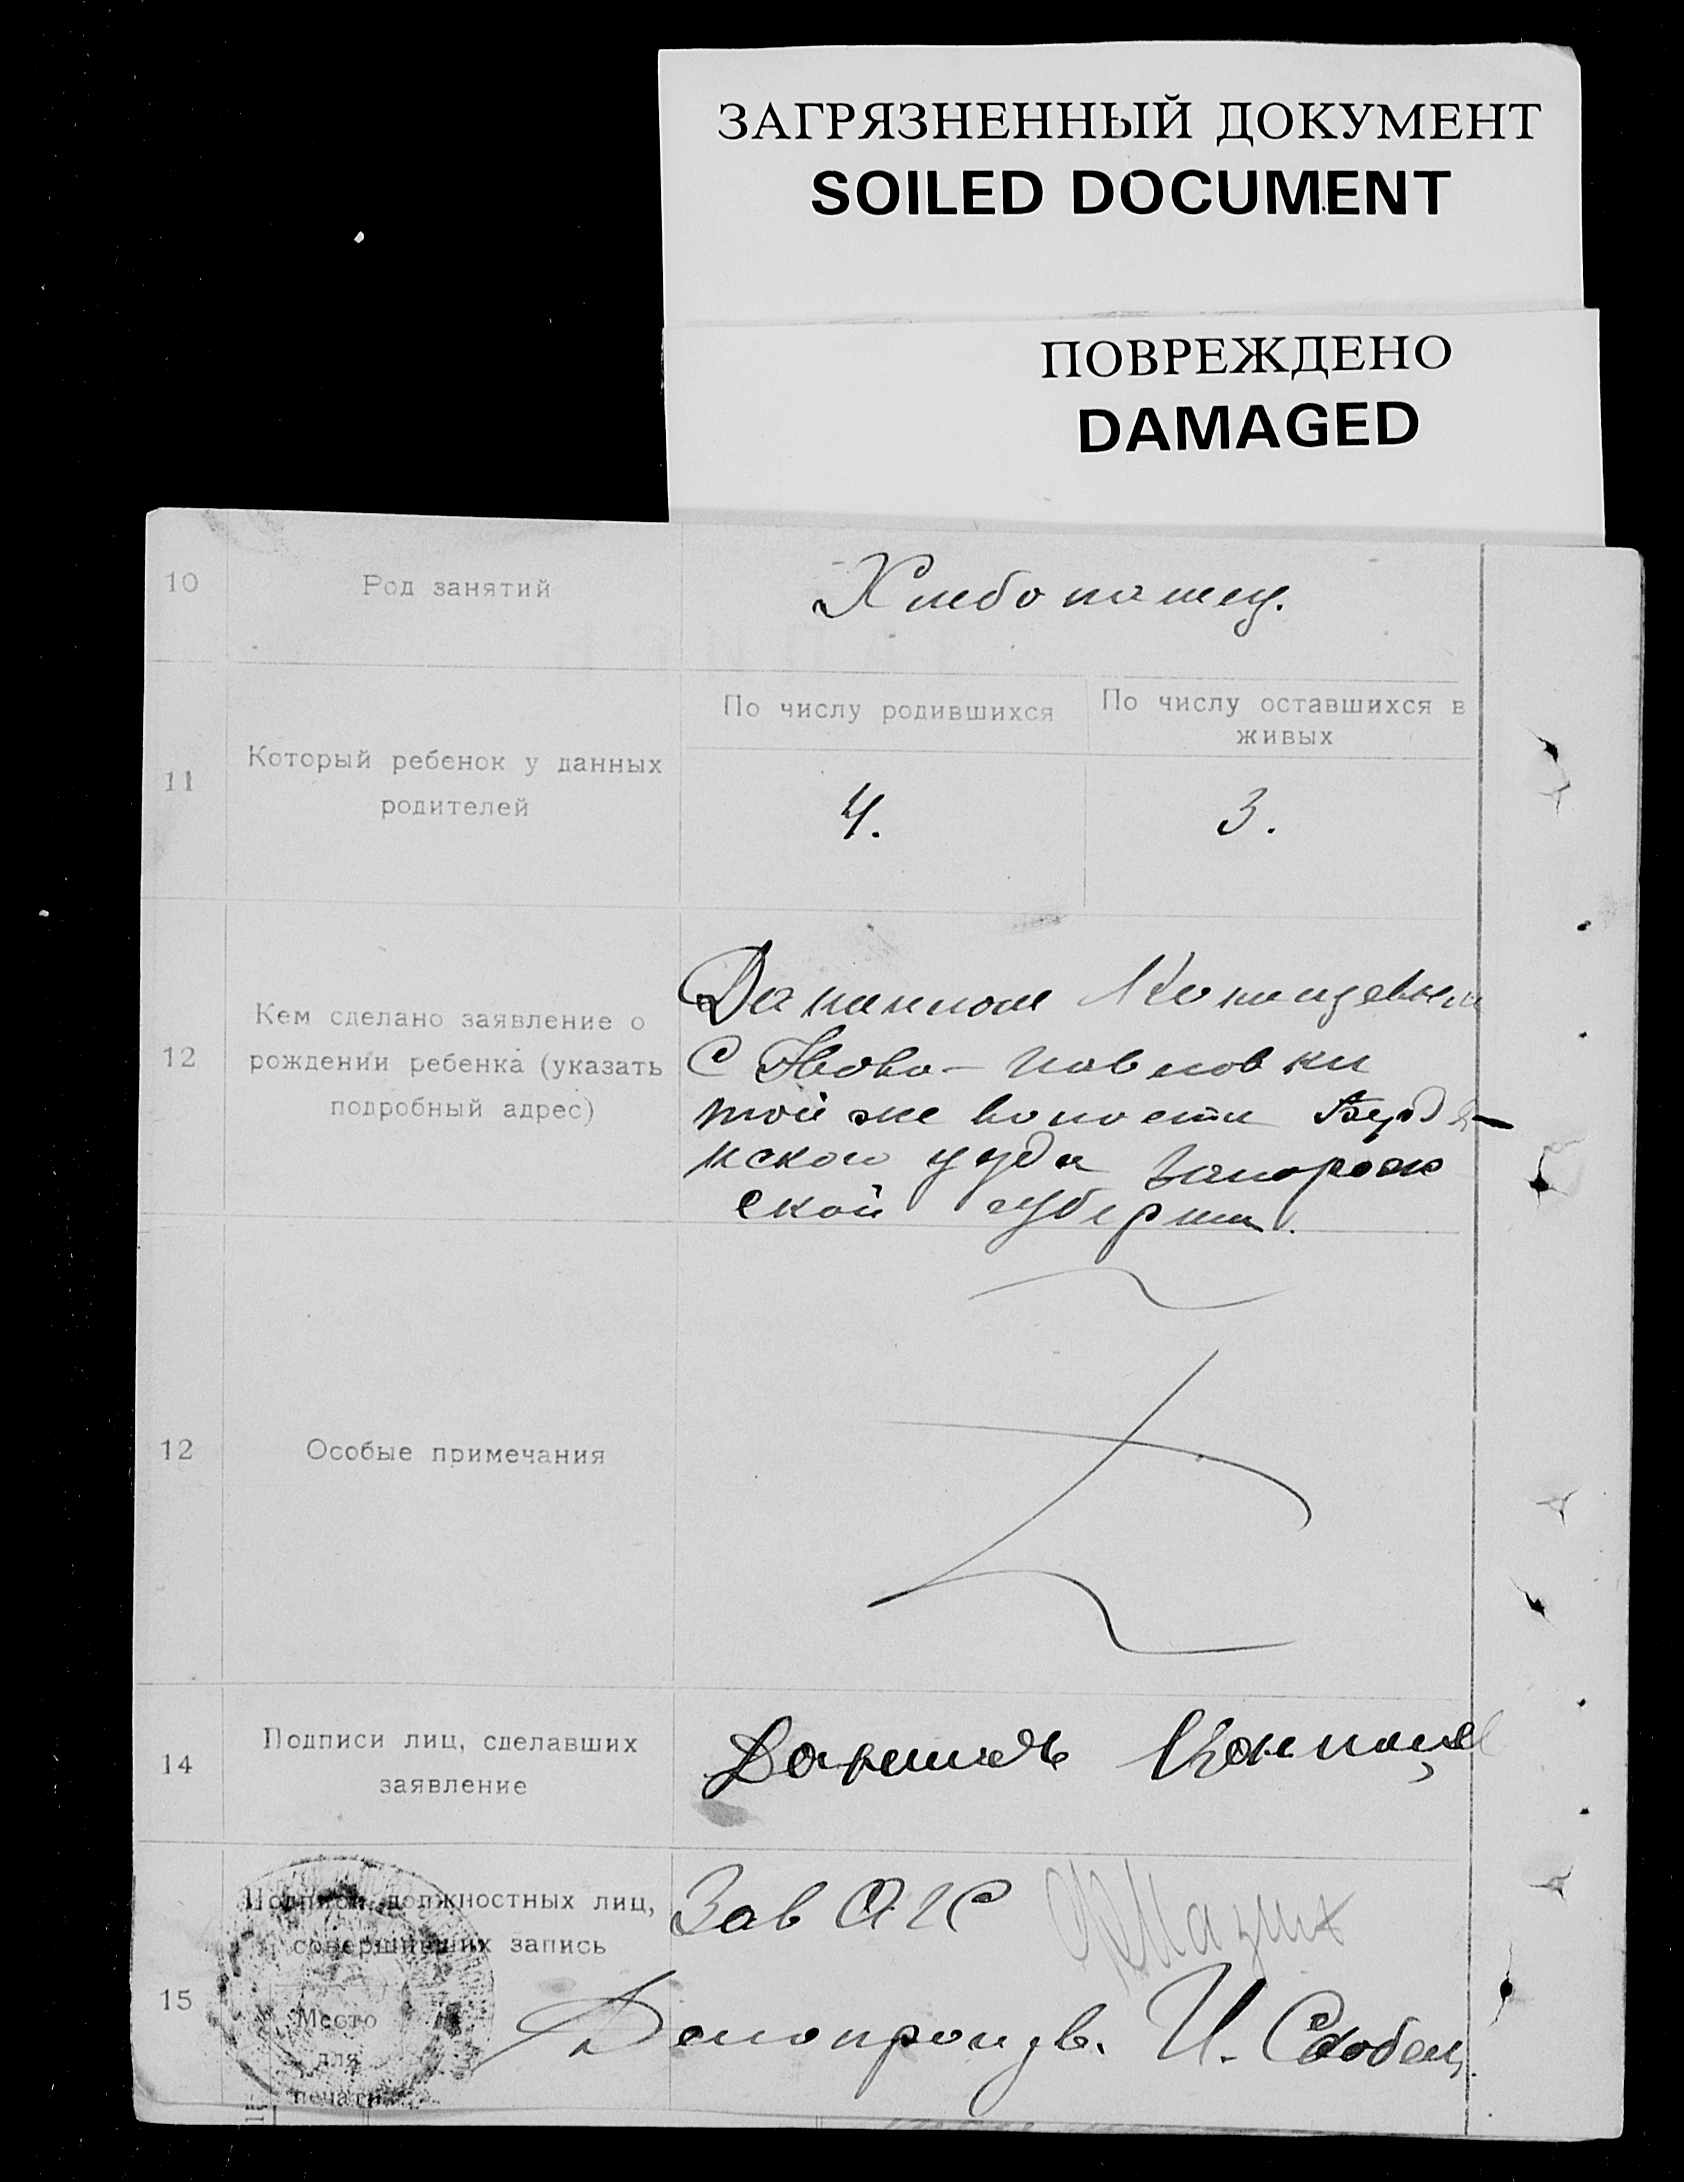 ЗАГРЯЗНЕННЫЙ ДОКУМЕНТ
SOILED DOCUMENT
ПОВРЕЖДЕНО
DAMAGED
10 Род занятий Хлебопашец.
По числу родившихся По числу оставшихся в живых
11 Который ребенок у данных родителей 4. 3.
12 Кем сделано заявление о
рождении ребенка (указать
подробный адрес)
Даниилом
С Ново-Павловки
той же волости Бердя-
нского уезда Запорож
ской губернии.
12 Особые примечания
14 Подписи лиц, сделавших
заявление
15 Подписи должностных лиц,
совершивших запись
Зав
Место
для
печати
Делопроизв. И.